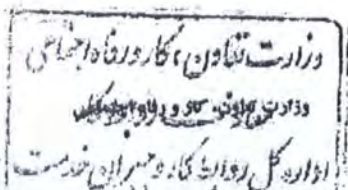 وزارت تعاون، کار و رفاه اجتماعی
وزارت تعاون، کار و رفاه
اداره کل روابط کار و جبران خدمت